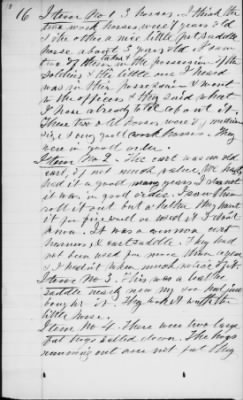 16 Item No 1. 3 horses. I think the
two work horses were 7 years old
& the other a nice little fat saddle
horse about 5 years old. I saw
two of them taken in the possession of the
soldiers & the little one I heard
was in their possession & went
to the officers & they said what
I have already told about it.
These two old horses were of medium
size, & very good work horses. They
were in good order.
Item No 2. The cart was an old
cart, of not much value. We
had it a good many years. I do not
it was in good order. I saw them
roll it out but whether they burnt
it for firewood or used it I don't
know. It was a common cart
harness & cart saddle. They had
not been used for more than a year
& I hadn't taken much notice of it.
Item No 3. This was a leather
saddle nearly new my son had just
bought it. They took it with the
little horse.
Item No 4. There were two large
fat hogs killed down. The hogs
running out were not but they